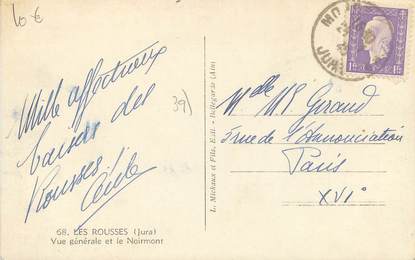 10 €
Mille affectueux
baisers des
Rousses !
Cécile
39)
68. LES ROUSSES (Jura)
Vue générale et le Noirmont
L. Michaux et Fils, Edit. - Bellegarde (Ain)
1F50 1F50
JURA
Mlle M. Giraud
5 rue de l'Annonciation
Paris
XVIº